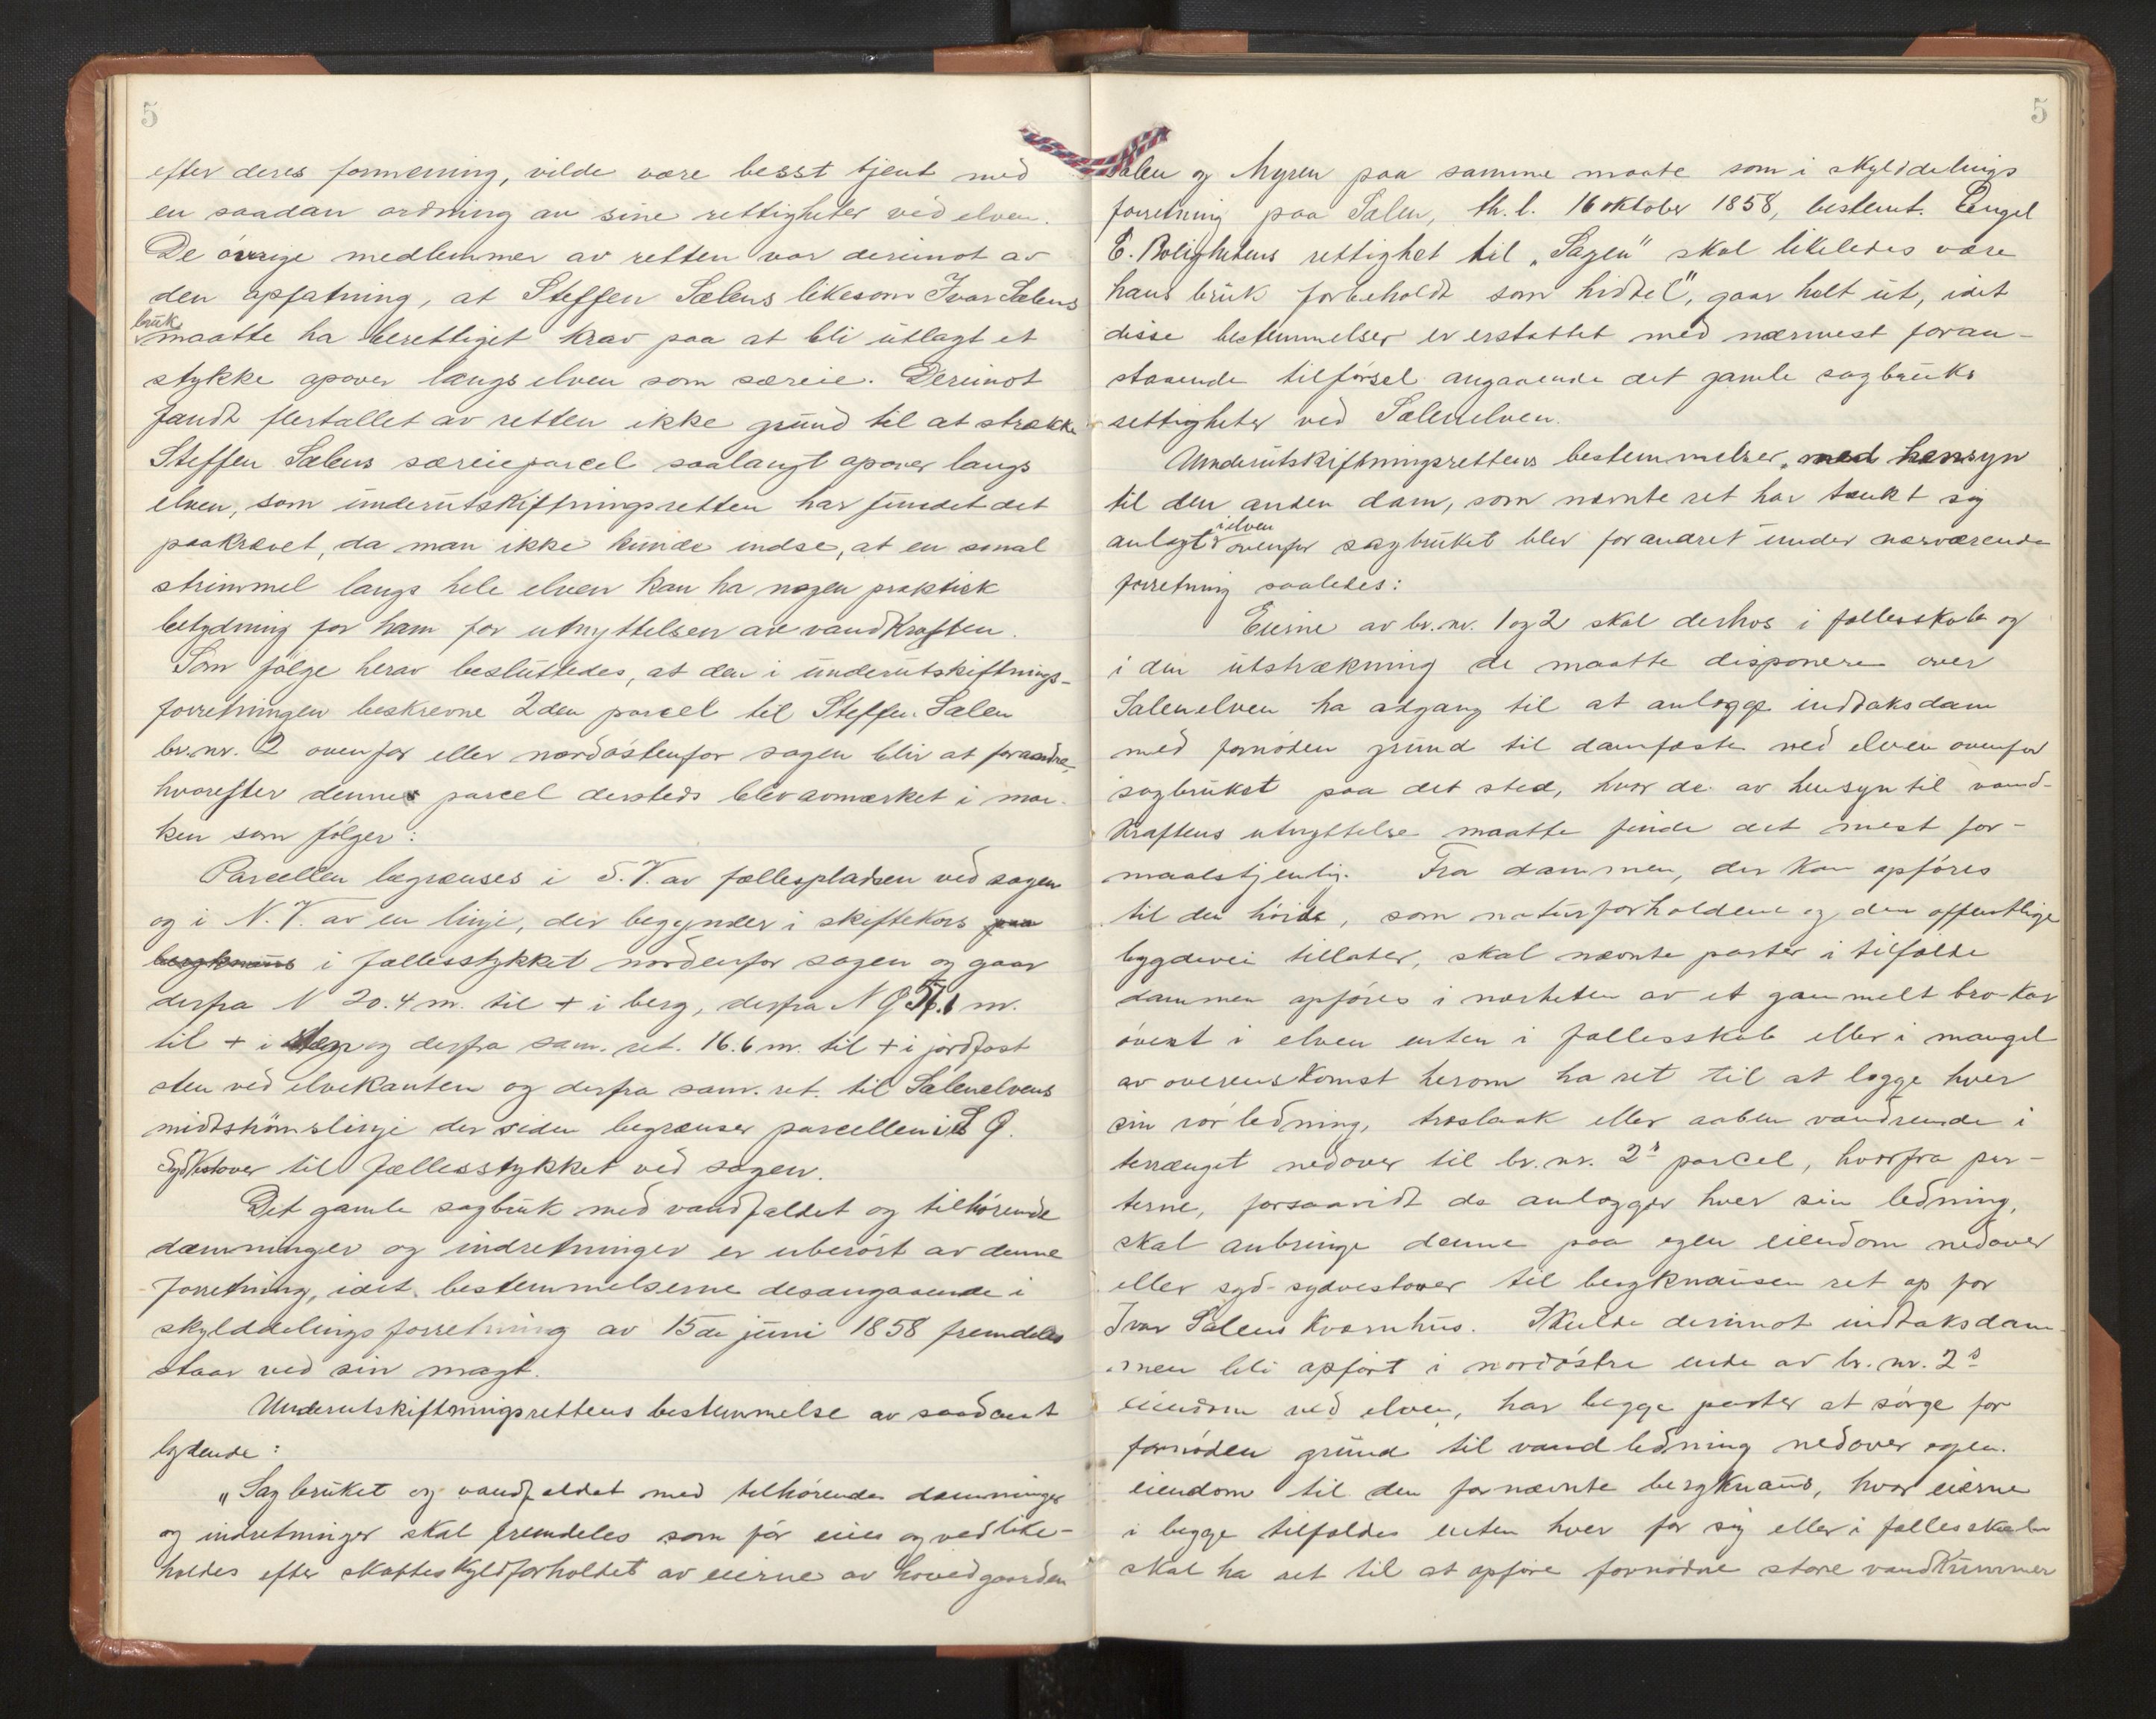 5
efter deres formening, vilde være besst tjent med
en saadan ordning av sine rettigheter ved elven.
De övrige medlemmer av retten var derimot av
den opfatning, at Steffen Sælens likesom Ivar Sælens
bruk
maatte ha berettiget krav paa at bli utlagt et
stykke opover langs elven som særeie. Derimot
fandt flertallet av retten ikke grund til at strække
Steffen Sælens særeieparcel saalangt opover langs
elven, som underutskiftningsretten har fundet det
paakrævet, da man ikke kunde indse, at en smal
strimmel langs hele elven kan ha nogen praktisk
betydning for ham for utnyttelsen av vandkraften.
Som følge herav besluttedes, at den i underutskiftnings-
forretningen beskrevne 2den parcel til Steffen Sælen
br.nr. 2 ovenfor eller nordöstenfor sagen blir at forandre,
hvorefter denne parcel dersteds blev avmærket i mar-
ken som følger:
Parcellen begrænses i S.V. av fællespladsen ved sagen
og i N.V. av en linje, der begynder i skiftekors paa
bergknaus i fællesstykket nordenfor sagen og gaar
derfra N 20.4 m. til + i berg, derfra N Ø 56.1 m.
til + i og derfra sam. ret. 16.6 m. til + i jordfast
sten ved elvekanten og derfra sam. ret. til Sælenelvens
midtströmslinje der siden begrænser parcellen i S Ø.
Sydvestover til fællesstykket ved sagen.
Det gamle sagbruk med vandfaldet og tilhörende
dæmninger og indretninger er uberört av denne
forretning, idet bestemmelserne desangaaende i
skylddelingsforretning av 15de juni 1858 fremdeles
staar ved sin magt.
Underutskiftningsrettens bestemmelse av saadant
lydende:
„Sagbruket og vandfaldet med tilhörende dæmninger
og indretninger skal fremdeles som för eies og vedlike-
holdes efter skatteskyldforholdet av eierne av hovedgaarden
5
Sælen og Myren paa samme maate som i skylddelings
forretning paa Sælen, th.l. 16 oktober 1858, bestemt. Engel
E. Bolighetens rettighet til „Sagen" skal likeledes være
hans bruk forbeholdt som hidtil", gaar helt ut, idet
disse bestemmelser er erstattet med nærmest foran-
staaende tilførsel angaaende det gamle sagbruks
rettigheter ved Sælenelven.
Underutskiftningsrettens bestemmelser med hensyn
til den anden dam, som nævnte ret har tænkt sig
i elven
anlagt ovenfor sagbruket blev forandret under nærværende
forretning saaledes:
Eierne av br.nr. 1 og 2 skal derhos i fællesskab og
i den utstrækning de maatte disponere over
Sælenelven ha adgang til at anlægge inddaksdam
med fornöden grund til damfæste ved elven ovenfor
sagbruket paa det sted, hvor de av hensyn til vand-
kraftens utnyttelse maatte finde det mest for-
maalstjenlig. Fra dammen, der kan opföres
til den höide, som naturforholdene og den offentlige
bygdevei tillater, skal nævnte parter i tilfælde
dammen opföres i nærheten av et gammelt bro kar
överst i elven enten i fællesskab eller i mangel
av overenskomst herom ha ret til at lægge hver
sin rörledning, træslaak eller aaben vandrende i
terrænget nedover til br.nr. 2s parcel, hvorfra par-
terne, forsaavidt de anlægger hver sin ledning,
skal anbringe denne paa egen eiendom nedover
eller syd-sydvestover til bergknausen ret op for
Ivar Sælens kvernhus. Skulde derimot indtaksdam-
men bli opfört i nordöstre ende av br.nr. 2s
eiendom ved elven, har begge parter at sörge for
fornöden grund til vandledning nedover egen
eiendom til den fornævnte bergknaus, hvor eierne
i begge tilfælde enten hver for sig eller i fællesskab
skal ha ret til at opføre fornødne store vandkummer